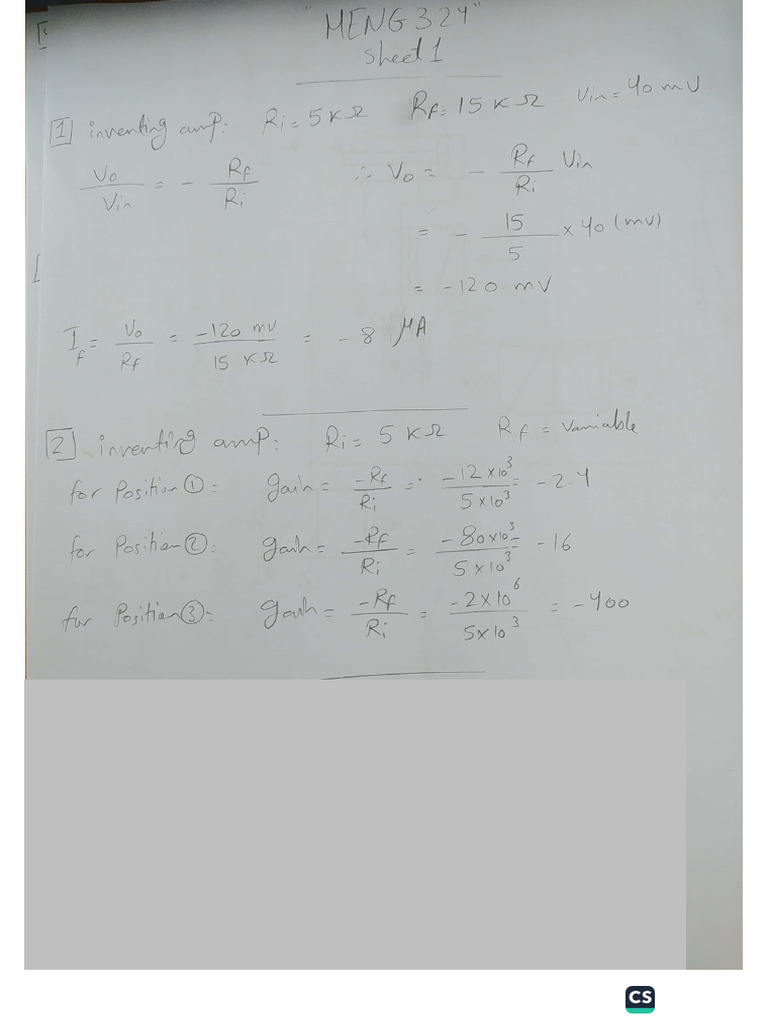 "MENG 324"
Sheet 1
[1] inverting amp: Ri = 5 KΩ Rf = 15 KΩ Vin = 40 mV
Vo/Vin = - Rf/Ri ∴ Vo = - Rf/Ri Vin
= - 15/5 × 40 (mV)
= -120 mV
If = Vo/Rf = -120 mV/15 KΩ = - 8 μA
[2] inverting amp: Ri = 5 KΩ Rf = Variable
for Position ①: gain = -Rf/Ri = -12×10³/5×10³ = -2.4
for Position ②: gain = -Rf/Ri = -80×10³/5×10³ = -16
for Position ③: gain = -Rf/Ri = -2×10⁶/5×10³ = -400
CS